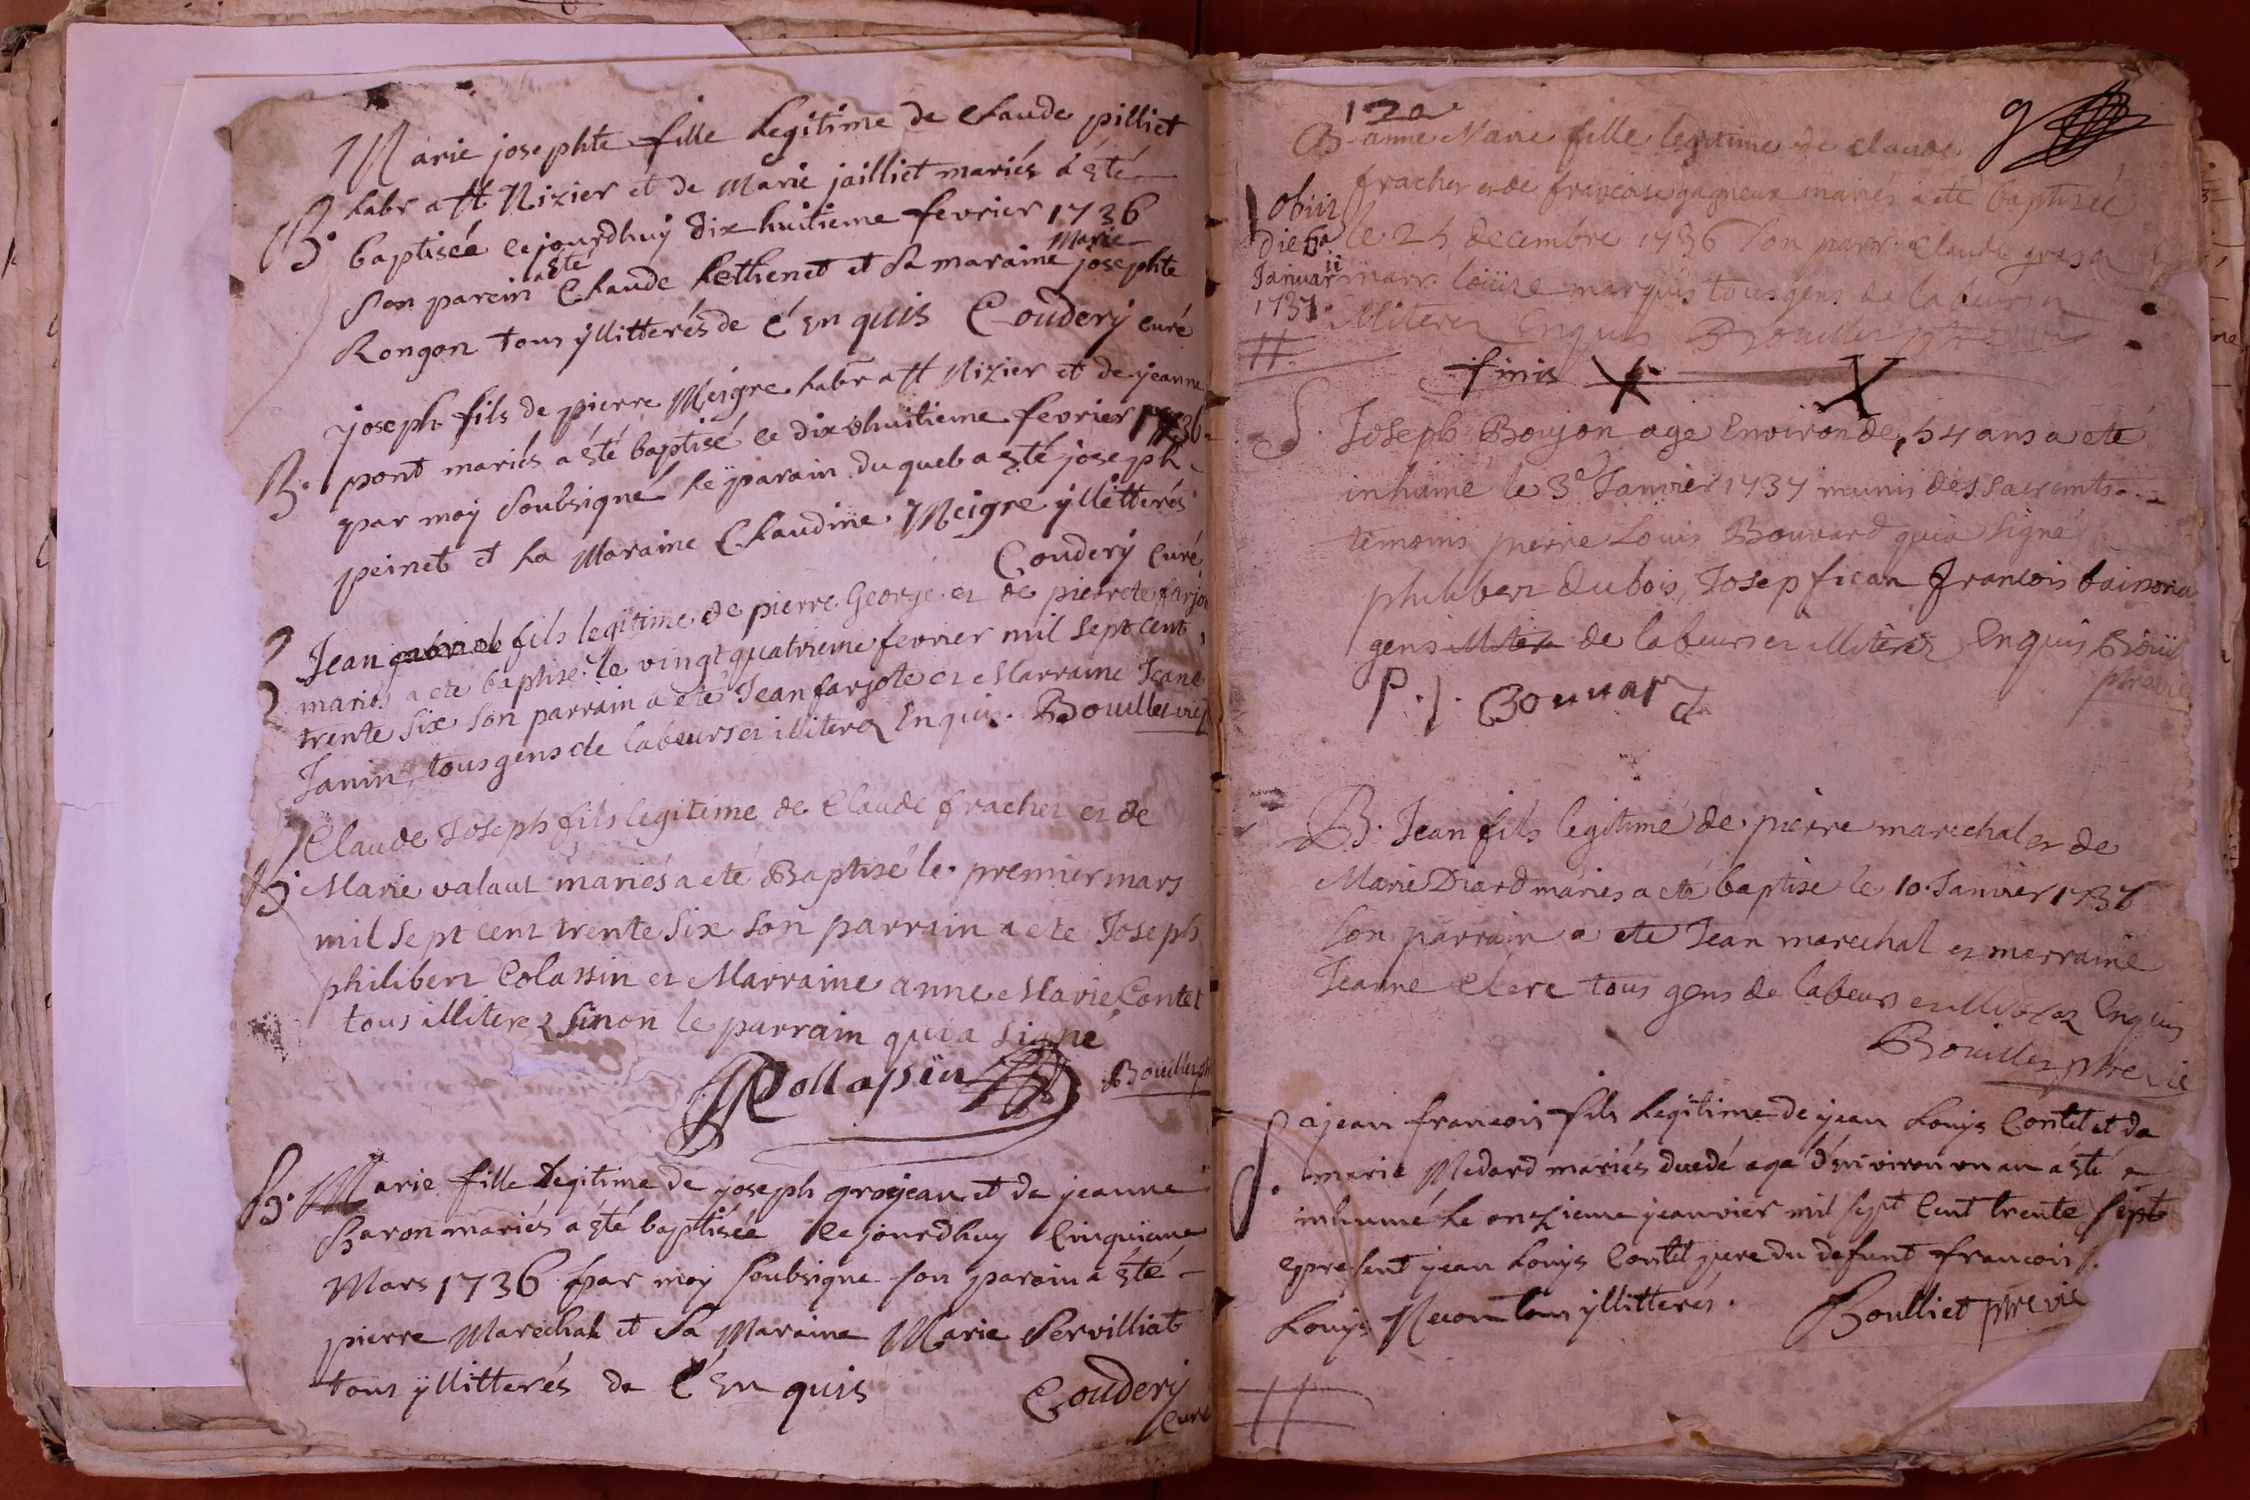 Marie josephte fille Legitime de Claude pilliet
B. habr a St Nizier et de Marie jailliet mariés à esté
baptisée ce jourdhuy dix huitieme fevrier 1736
son parein a esté Claude Lethenet et sa maraine Marie josephte
Rongon tous yllitterés de ce enquis Coudery curé
joseph fils de pierre Meigre habr a St Nizier et de jeanne
B. pont mariés a esté baptisé ce dixhuitieme fevrier 1736
par moy soubsigné le parain du quel a esté joseph
peinet et la Maraine Claudine Meigre yllitterés
Coudery curé
Jean fils legitime de pierre George et de pierrete farjo
mariés a eté baptisé le vingt quatrieme fevrier mil sept cent
trente six son parrain a eté Jean farjote et Marraine Jeane
Janin, tous gens de labeurs et illiterez Enquis. Bouillet vic
Claude Joseph fils legitime de Claude frachet et de
B. Marie valaut mariés a eté Baptisé le premier mars
mil sept cent trente six son parrain a ete Joseph
philibert Colassin et Marraine anne Marie Contet
tous illiterez sinon le parrain qui a signé
Collassin Bouillet
B. Marie fille Legitime de joseph grosjean et de jeanne
Baron mariés a été baptisée ce jourdhuy Cinquieme
Mars 1736 par moy soubsigne son parain a esté
pierre Marechal et sa Maraine Marie Servilliat
tous yllitterés de ce enquis Coudery
curé
9
B. anne Marie fille legitime de claude
frachet et de francoise gagneux mariés a eté baptisée
le 25 decembre 1736 son parr. Claude
marr. Loüise marquis tous gens de labeurs et
illiterez Enquis Bouillet
obiit
die 6a
Januarii
1737
finis
S. Joseph Boujon agé Environ de 54 ans a eté
inhumé le 3e Janvier 1737 munis des sacremts
temoins pierre Louis Bouvard qui a signé
philibert Dubois, Josep fican francois
gens illiter de labeurs et illiterez Enquis Boüil
ptre vic
P. l. Bouvard
B. Jean fils legitime de pierre marechal et de
Marie Diard mariés a eté baptisé le 10 Janvier 1737
Son parrain a ete Jean marechal et marraine
Jeanne Clerc tous gens de labeurs et illiterez Enquis
Bouillet ptre vic
S. jean francois fils Legitime de jean Louys Contet et de
marie Medard mariés agé d'environ un an a esté
inhumé le onzieme jeanvier mil sept Cent trente sept
present jean Louys Contet pere du defunt francois
Louys tous yllitterés. Boulliet ptre vic